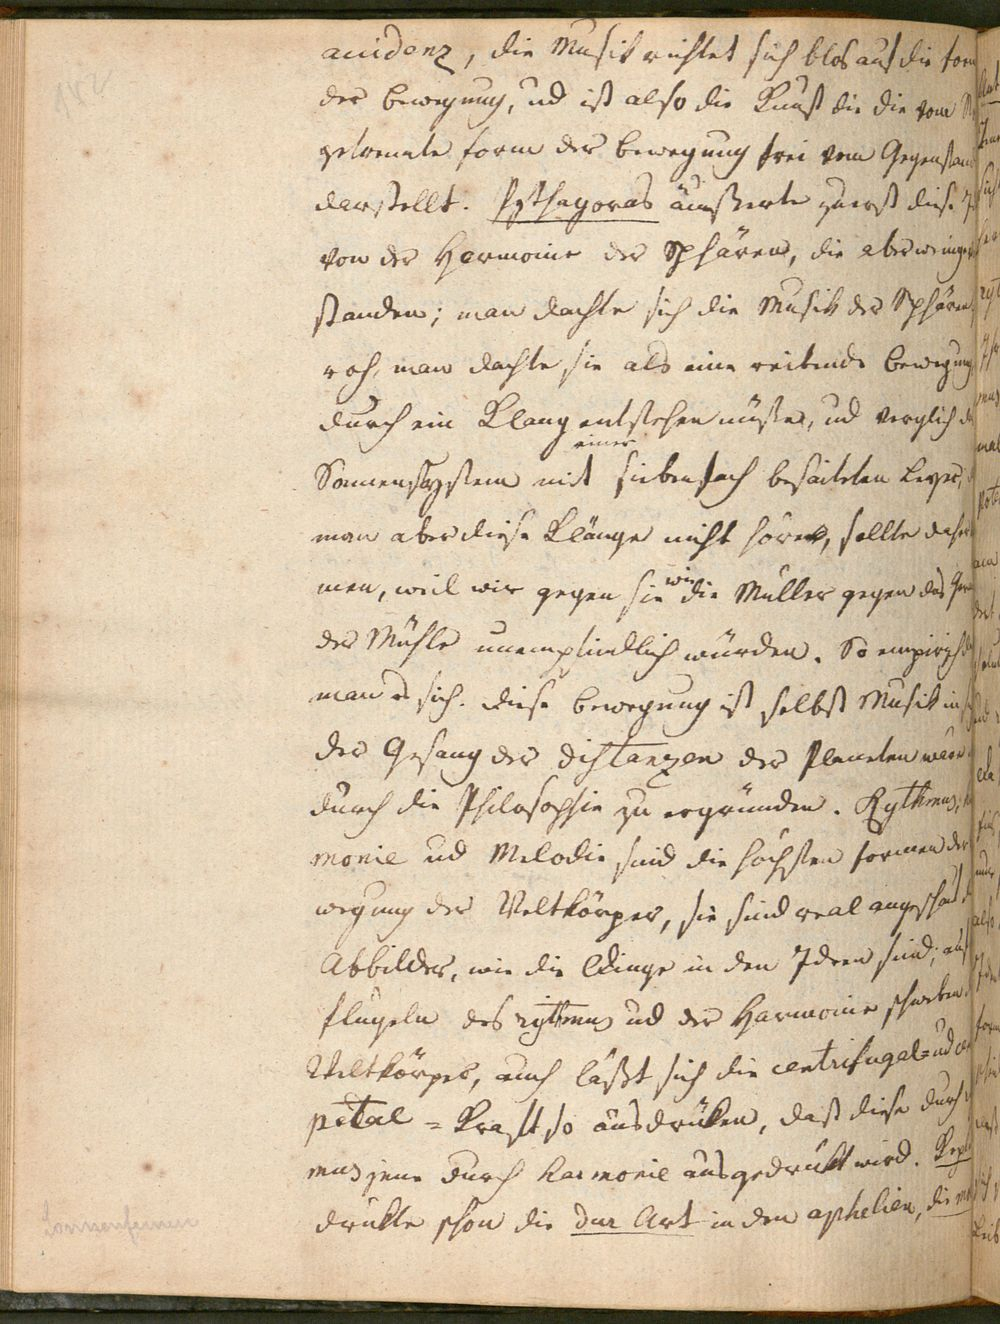 accidenz, die Musik richtet sich blos auf die form
der bewegung, ud ist also die Kunst die die vom
getrennte form der bewegung frei vom Gegenstan
darstellt. Pythagoras äußerte zuerst diese
von der Harmonie der Sphären, die aber wenige
standen; man dachte sich die Musik der Sphären
roh, man dachte sie als eine reitende bewegung
durch ein Klang entstehen müsse, ud verglich d
einer
Sonnensystem mit siebenfach besaiteten Leyer,
man aber diese Klänge nicht höre, sollte daher
men, weil wir gegen sie wie die Müller gegen das
der Mühle unempfindlich würden. So empirisch d
man es sich. diese bewegung ist selbst Musik in
der Gesang der distanzen der Planeten wäre
durch die Philosophie zu ergründen. Rythmus,
monie ud Melodie sind die höchsten formen der
wegung der Weltkörper, sie sind real angeschaut
Abbilder, wie die Dinge in den Ideen sind; auf
flügeln des rythmus ud der Harmonie schweben
Weltkörper, auch läßt sich die centrifugal= ud ce
petal = Kraft so ausdrüken, daß diese durch
mus jene durch Harmonie ausgedrukt wird. Kepl
drukte schon die dur Art in den aphelien, die m